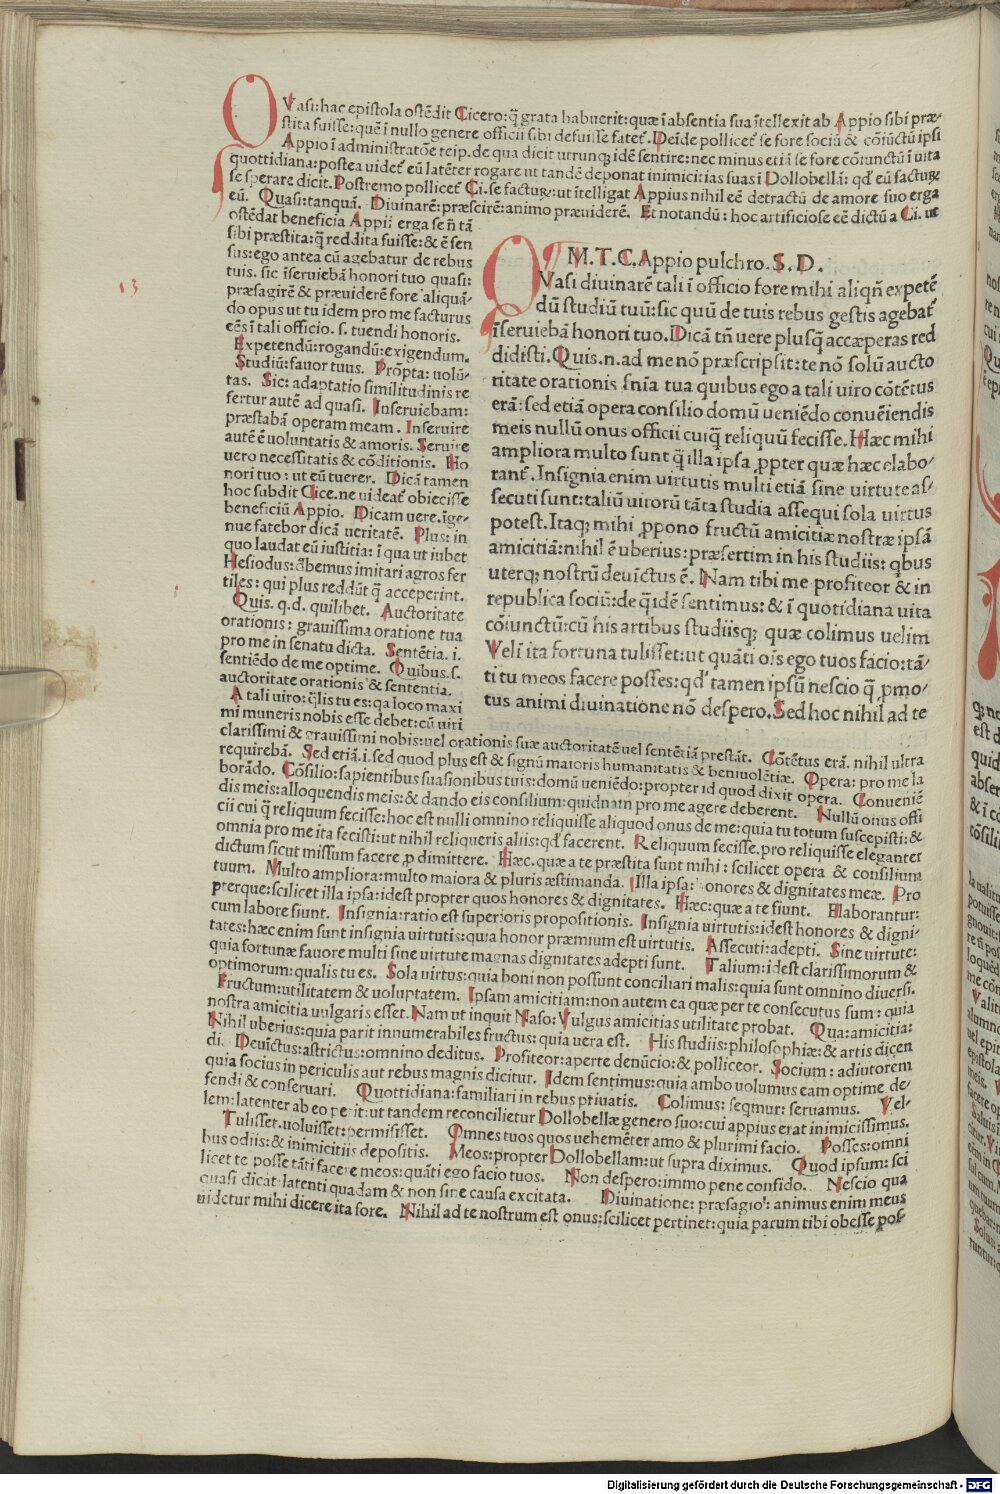 QVasi: hac epistola ostēdit Cicero: q̄ grata habuerit: quæ ī absentia sua ītellexit ab Appio sibi præ-
stita fuisse: quē ī nullo genere officii sibi defuisse fatet̃. Deīde pollicet̃ se fore sociū & cōiūctū ipsi
Appio ī administratōe reip. de qua dicit utrunq; idē sentire: nec minus etiā se fore cōiunctū ī uita
quottidiana: postea uidet̃ eū latēter rogare ut tandē deponat inimicitias suas ī Dollobellā: qđ eū facturꝝ
se sperare dicit. Postremo pollicet̃ Ci. se facturꝝ: ut ītelligat Appius nihil eē detractū de amore suo erga
eū. Quasi: tanquā. Diuinarē: præscirē: animo præuiderē. Et notandū: hoc artificiose eē dictū a Ci. ut
ostēdat beneficia Appii erga se ñ tā
sibi præstita: q̄ reddita fuisse: & ē sen
sus: ego antea cū agebatur de rebus
tuis. sic īseruiebā honori tuo quasi:
præsagirē & præuiderē fore aliquā-
do opus ut tu idem pro me facturus
eēs ī tali officio. s. tuendi honoris.
Expetendū: rogandū: exigendum.
Studiū: fauor tuus. Prōpta: uolū-
tas. Sic: adaptatio similitudinis re
fertur autē ad quasi. Inseruiebam:
præstabā operam meam. Inseruire
autē ē uoluntatis & amoris. Seruire
uero necessitatis & cōditionis. Ho
nori tuo: ut eū tuerer. Dicā tamen
hoc subdit Cice. ne uideat̃ obiecisse
beneficiū Appio. Dicam uere. īge-
nue fatebor dicā ueritatē. Plus: in
quo laudat eū iustitia: ī qua ut iubet
Hesiodus: d̄bemus imitari agros fer
tiles: qui plus reddūt q̄ acceperint.
Quis. q. d. quilibet. Auctoritate
orationis: grauissima oratione tua
pro me in senatu dicta. Sentētia. i.
sentiēdo de me optime. Quibus. s.
auctoritate orationis & sententia.
A tali uiro: q̄lis tu es: qa loco maxi
mi muneris nobis esse debet: cū uiri
M. T. C. Appio pulchro. S. D.
QVasi diuinarē tali ī officio fore mihi aliqñ expetē
dū studiū tuū: sic quū de tuis rebus gestis agebat̃
īseruiebā honori tuo. Dicā tñ uere plusq̄ accæperas red
didisti. Quis. n. ad me nō præscripsit: te nō solū aucto
ritate orationis snīa tua quibus ego a tali uiro cōtētus
erā: sed etiā opera consilio domū ueniēdo conuēiendis
meis nullū onus officii cuiq̄ reliquū fecisse. Hæc mihi
ampliora multo sunt q̄ illa ipsa ꝓpter quæ hæc elabo-
rant̃. Insignia enim uirtutis multi etiā sine uirtute as-
secuti sunt: taliū uirorū tāta studia assequi sola uirtus
potest. Itaq; mihi ꝓpono fructū amicitiæ nostræ ipsā
amicitiā: nihil ē uberius: præsertim in his studiis: qbus
uterq; nostrū deuīctus ē. Nam tibi me profiteor & in
republica sociū: de q̄ idē sentimus: & ī quotidiana uita
cōiunctū: cū his artibus studiisq; quæ colimus uelim
Veli ita fortuna tulisset: ut quāti oīs ego tuos facio: tā-
ti tu meos facere posses: qđ tamen ipsū nescio q̄ ꝓmo-
tus animi diuinatione nō despero. Sed hoc nihil ad te
clarissimi & grauissimi nobis: uel orationis suæ auctoritatē uel sentētiā prestāt. Cōtētus erā. nihil ultra
requirebā. Sed etiā. i. sed quod plus est & signū maioris humanitatis & beniuolētiæ. Opera: pro me la
borādo. Cōsilio: sapientibus suasionibus tuis: domū ueniēdo: propter id quod dixit opera. Conueniē
dis meis: alloquendis meis: & dando eis consilium: quidnam pro me agere deberent. Nullū onus offi
cii cui q̄ reliquum fecisse: hoc est nulli omnino reliquisse aliquod onus de me: quia tu totum suscepisti: &
omnia pro me ita fecisti: ut nihil reliqueris aliis: qđ facerent. Reliquum fecisse. pro reliquisse eleganter
dictum sicut missum facere ꝓ dimittere. Hæc. quæ a te præstita sunt mihi: scilicet opera & consilium
tuum. Multo ampliora: multo maiora & pluris æstimanda. Illa ipsa: honores & dignitates meæ. Pro
pterque: scilicet illa ipsa: idest propter quos honores & dignitates. Hæc: quæ a te fiunt. Elaborantur:
cum labore fiunt. Insignia: ratio est superioris propositionis. Insignia uirtutis: idest honores & digni-
tates: hæc enim sunt insignia uirtutis: quia honor præmium est uirtutis. Assecuti: adepti. Sine uirtute:
quia fortunæ fauore multi sine uirtute magnas dignitates adepti sunt. Talium: idest clarissimorum &
optimorum: qualis tu es. Sola uirtus: quia boni non possunt conciliari malis: quia sunt omnino diuersi.
Fructum: utilitatem & uoluptatem. Ipsam amicitiam: non autem ea quæ per te consecutus sum: quia
nostra amicitia uulgaris esset. Nam ut inquit Naso: Vulgus amicitias utilitate probat. Qua: amicitia:
Nihil uberius: quia parit innumerabiles fructus: quia uera est. His studiis: philosophiæ: & artis dicen
di. Deuīctus: astrictus: omnino deditus. Profiteor: aperte denūcio: & polliceor. Socium: adiutorem
quia socius in periculis aut rebus magnis dicitur. Idem sentimus: quia ambo uolumus eam optime de-
fendi & conseruari. Quottidiana: familiari in rebus priuatis. Colimus: seqmur: seruamus. Vel-
lem: latenter ab eo petit: ut tandem reconcilietur Dollobellæ genero suo: cui appius erat inimicissimus.
Tulisset. uoluisset: permisisset. Omnes tuos quos uehemēter amo & plurimi facio. Posses: omni
bus odiis: & inimicitiis depositis. Meos: propter Dollobellam: ut supra diximus. Quod ipsum: sci
licet te posse tāti facere meos: quāti ego facio tuos. Non despero: immo pene confido. Nescio qua
quasi dicat: latenti quadam & non sine causa excitata. Diuinatione: præsagio: animus enim meus
uidetur mihi dicere ita fore. Nihil ad te nostrum est onus: scilicet pertinet: quia parum tibi obesse pos-
13
Digitalisierung gefördert durch die Deutsche Forschungsgemeinschaft - DFG